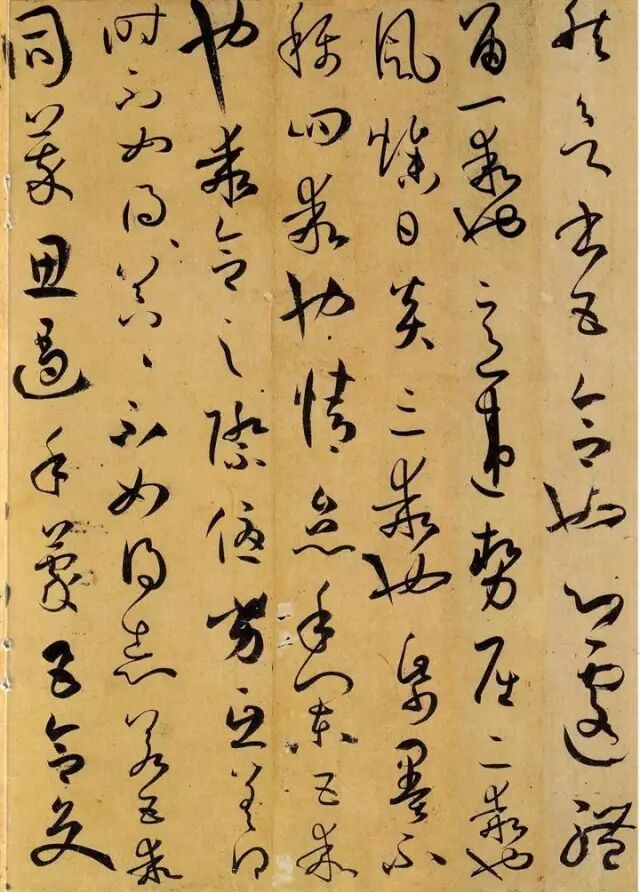 然欲書五合也心遽體
留一乖也意違勢屈二乖也
風燥日炎三乖也紙墨不
稱四乖也情怠手闌五乖
也乖合之際優劣互差得
時不如得〻器〻不如得志若五乖
同萃思遏手蒙五合交